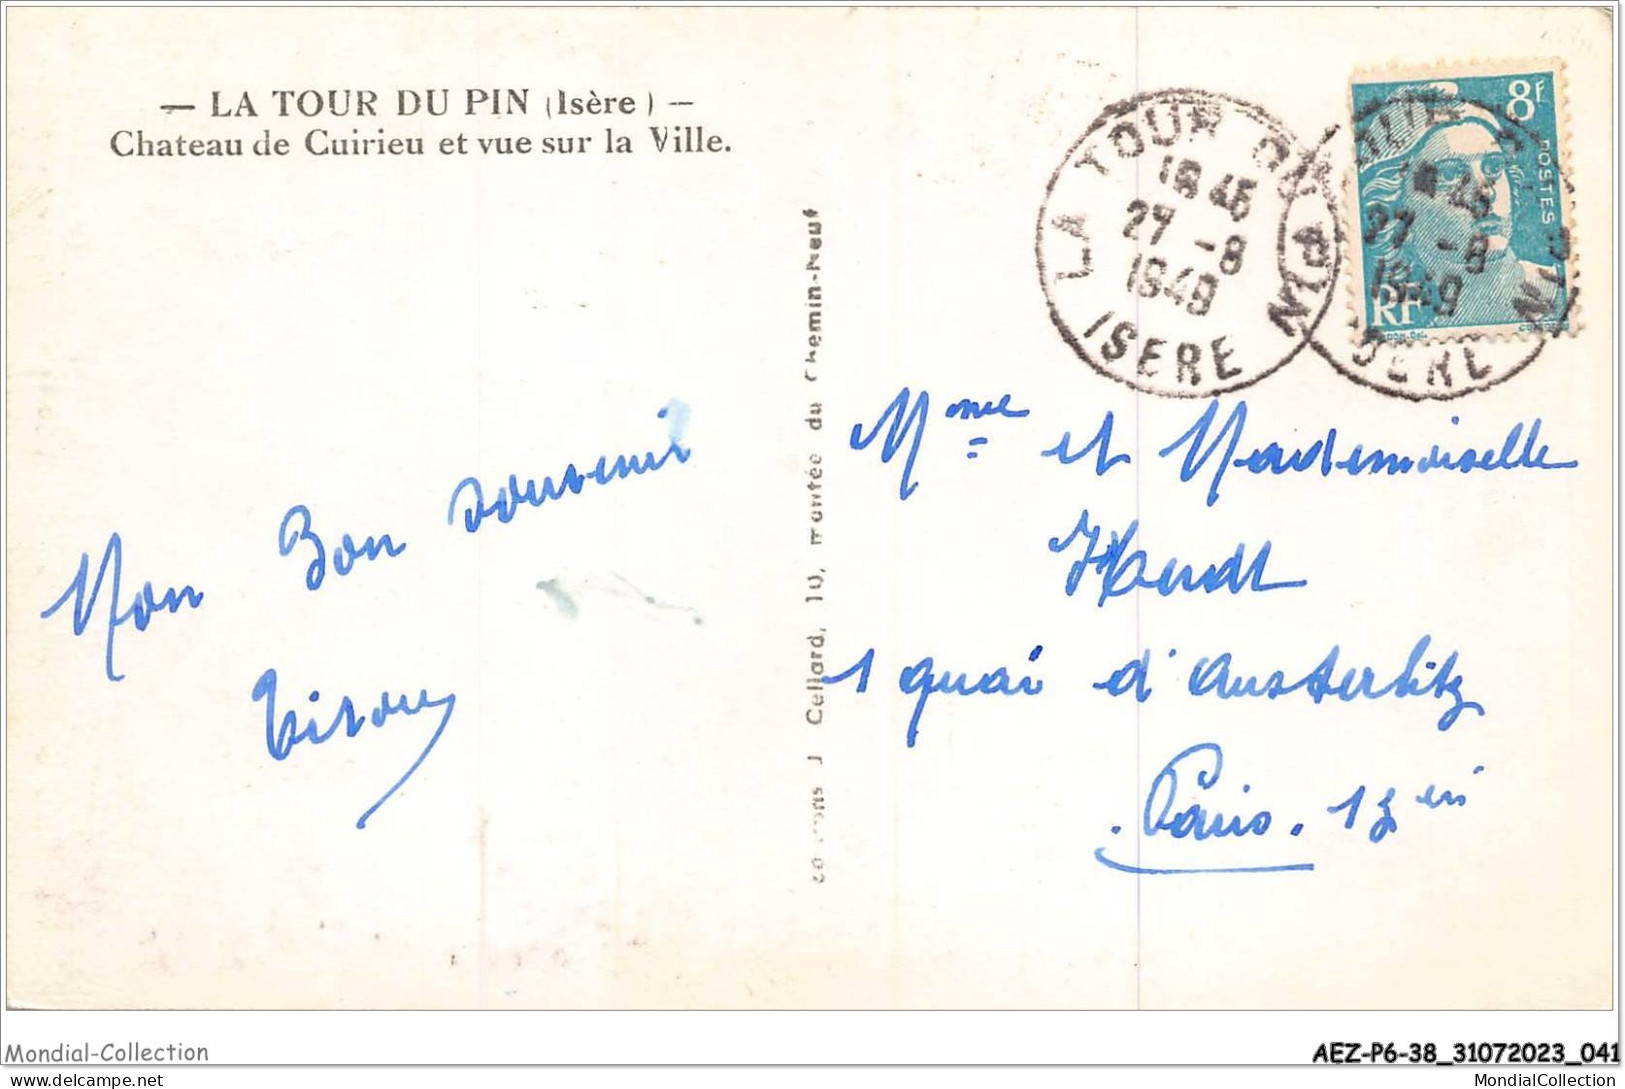 — LA TOUR DU PIN (Isère) —
Chateau de Cuirieu et vue sur la Ville.
LA TOUR DU PIN
18 45
27 -8
1949
ISERE
8F
POSTES
RF
LA TOUR DU PIN
18 45
27 -8
1949
ISERE
J Cellard, 10, montée du Chemin-Neuf
Mon Bon souvenir
Mme et Mademoiselle
1 quai d'Austerlitz
Paris. 13
Mondial-Collection
AEZ-P6-38_31072023_041
delcampe.net
MondialCollection